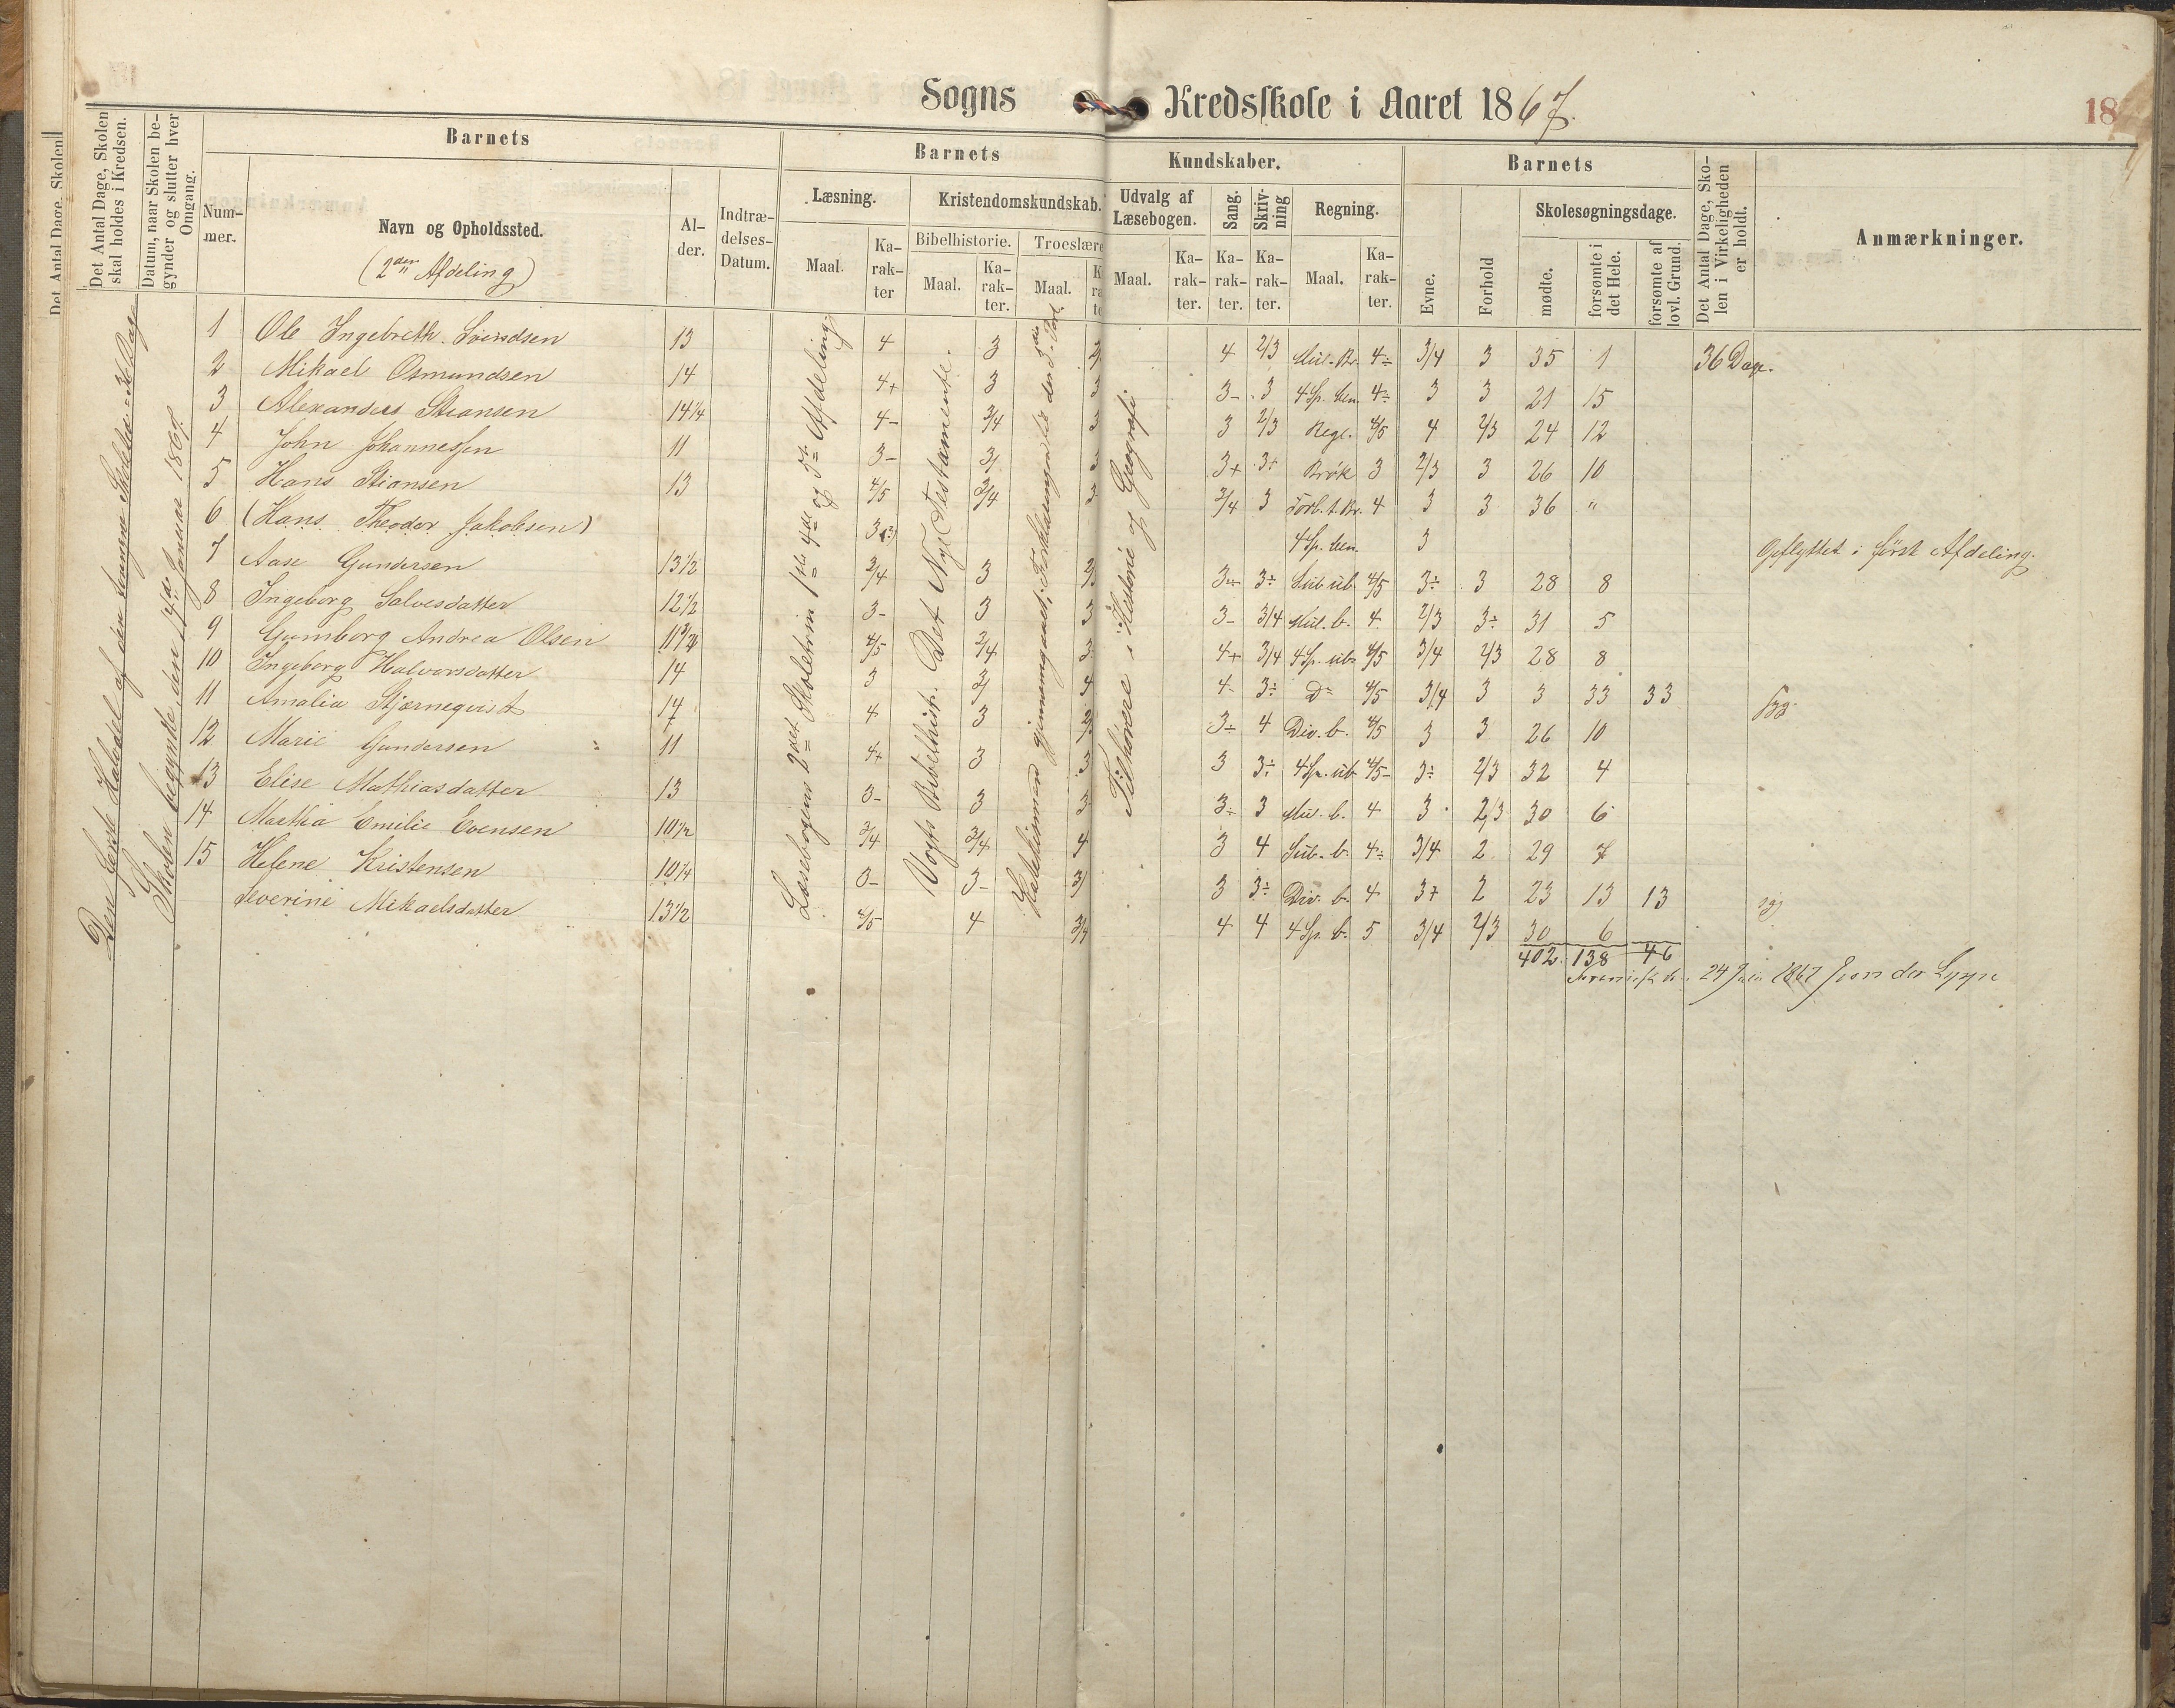 Sogns Kredsskole i Aaret 1867.
18
Det Antal Dage, Skolen
Det Antal Dage, Skolen skal holdes i Kredsen.
Datum, naar Skolen begynder og slutter hver Omgang.
Barnets
Barnets
Kundskaber.
Barnets
Det Antal Dage, Skolen i Virkeligheden er holdt.
Anmærkninger.
Nummer.
Navn og Opholdssted.
(2den Afdeling)
Alder.
Indtrædelses-Datum.
Læsning.
Kristendomskundskab.
Udvalg af Læsebogen.
Sang.
Skrivning
Regning.
Evne.
Forhold
Skolesøgningsdage.
Maal.
Karakter
Bibelhistorie.
Troeslære
Maal.
Karakter.
Maal.
Maal.
Karakter.
Karakter.
Karakter.
Maal.
Karakter.
mødte.
forsømte i det Hele.
forsømte af lovl. Grund.
Skolen begyndte den 14de Januar 1867.
Læsebogens 2det Skoletrin 1ste 4de og 5te Afdeling.
Vogts Bibelhist. Det Nye Testamente.
Tilhörere i Historie og Geografi.
1 Ole Ingebreth. Svendsen 13 4 3 4 2/3 Mul. Br. 4÷ 3/4 3 35 1 36 Dage.
2 Mikael Osmundsen 14 4+ 3 3 3- 3 4 Sp. ben. 4÷ 3 3 21 15
3 Alexander Stiansen 14 1/4 4- 3/4 3 3 2/3 Regl. 4/5 4 2/3 24 12
4 John Johannessen 11 3- 3 3+ 3+ Brök 3 2/3 3 26 10
5 Hans Stiansen 13 4/5 3/4 3/4 3 Forb. t. Br. 4 3 3 36 "
6 (Hans Theodor Jakobsen) 4 Sp. ben. 3 Opflyttet i först Afdeling.
7 Aase Gundersen 13 1/2 3/4 3 3÷ 3÷ Sub. ub. 4/5 3÷ 3 28 8
8 Ingeborg Salvesdatter 12 1/2 3- 3 3 3- 3/4 Mul. b. 4 2/3 3÷ 31 5
9 Gumborg Andrea Olsen 4/5 3/4 4+ 3/4 4 Sp. ub. 4/5 3/4 2/3 28 8
10 Ingeborg Halvorsdatter 14 3 3 4 4- 3÷ Do 4/5 3/4 3 3 33 33
11 Amalia Stjerneqvist 14 4 3 3÷ 4 Div. b. 4/5 3 3 26 10
12 Marie Gundersen 11 4+ 3 3 3 3÷ 4 Sp. ub. 4/5- 3÷ 2/3 32 4
13 Elise Mathiasdatter 13 3- 3 3 3÷ 3 Mul. b. 4 3 2/3 30 6
14 Marthia Emilie Evensen 10 1/2 3/4 3/4 4 3 4 Sub. b. 4÷ 3/4 2 29 7
15 Helene Kristensen 10 1/4 3- 3- 3 3÷ Div. b. 4 3+ 2 23 13 13
Severine Mikaelsdatter 13 1/2 4/5 4 3/4 4 4 4 Sp. b. 5 3/4 2/3 30 6
402. 138 46
24 Juli 1867 von der Lippe